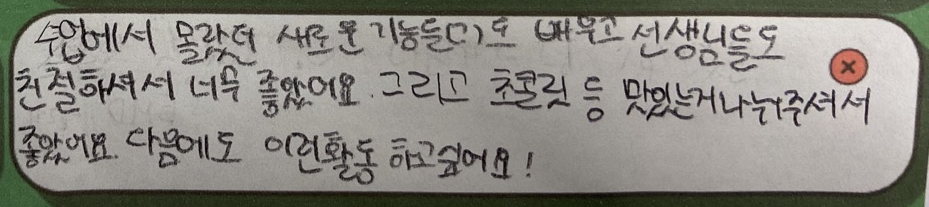 수업에서 몰랐던 새로운 기능들도 배우고 선생님들도
친절하셔서 너무 좋았어요. 그리고 초콜릿 등 맛있는거 나눠주셔서
좋았어요. 다음에도 이런활동 하고싶어요!